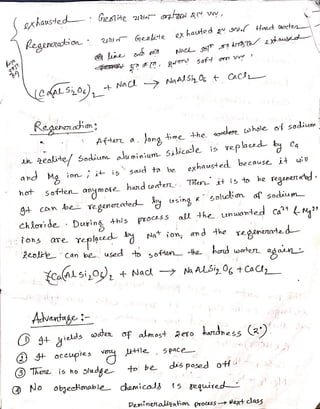 exhausted : Geolite যখন
Regeneration : যখন Gealite exhausted Hard water
Nacl exhausted
soft
(CaAlSi2O6)2 + NaCl → NaAlSi2O6 + CaCl2
Regeneration :
After a long time the whole of sodium
in zeolite/ Sodium aluminium silicate is replaced by Ca
and Mg ion ; it is said to be exhausted because it will
not soften anymore hard water. Then it is to be regenerated.
It can be regenerated by using a solution of sodium
chloride. During this process all the unwanted Ca2+ & Mg2+
ions are replaced by Na+ ion, and the regenerated
Zeolite can be used to soften the hard water again.
Ca(AlSi2O6)2 + NaCl → NaAlSi2O6 + CaCl2
Advantage :-
① It yields water of almost zero hardness (2°)
② It occupies very little space
③ There is no sludge to be disposed off
④ No objectionable chemicals is required
Demineralization process → Next class